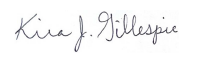 Kira J. Gillespie